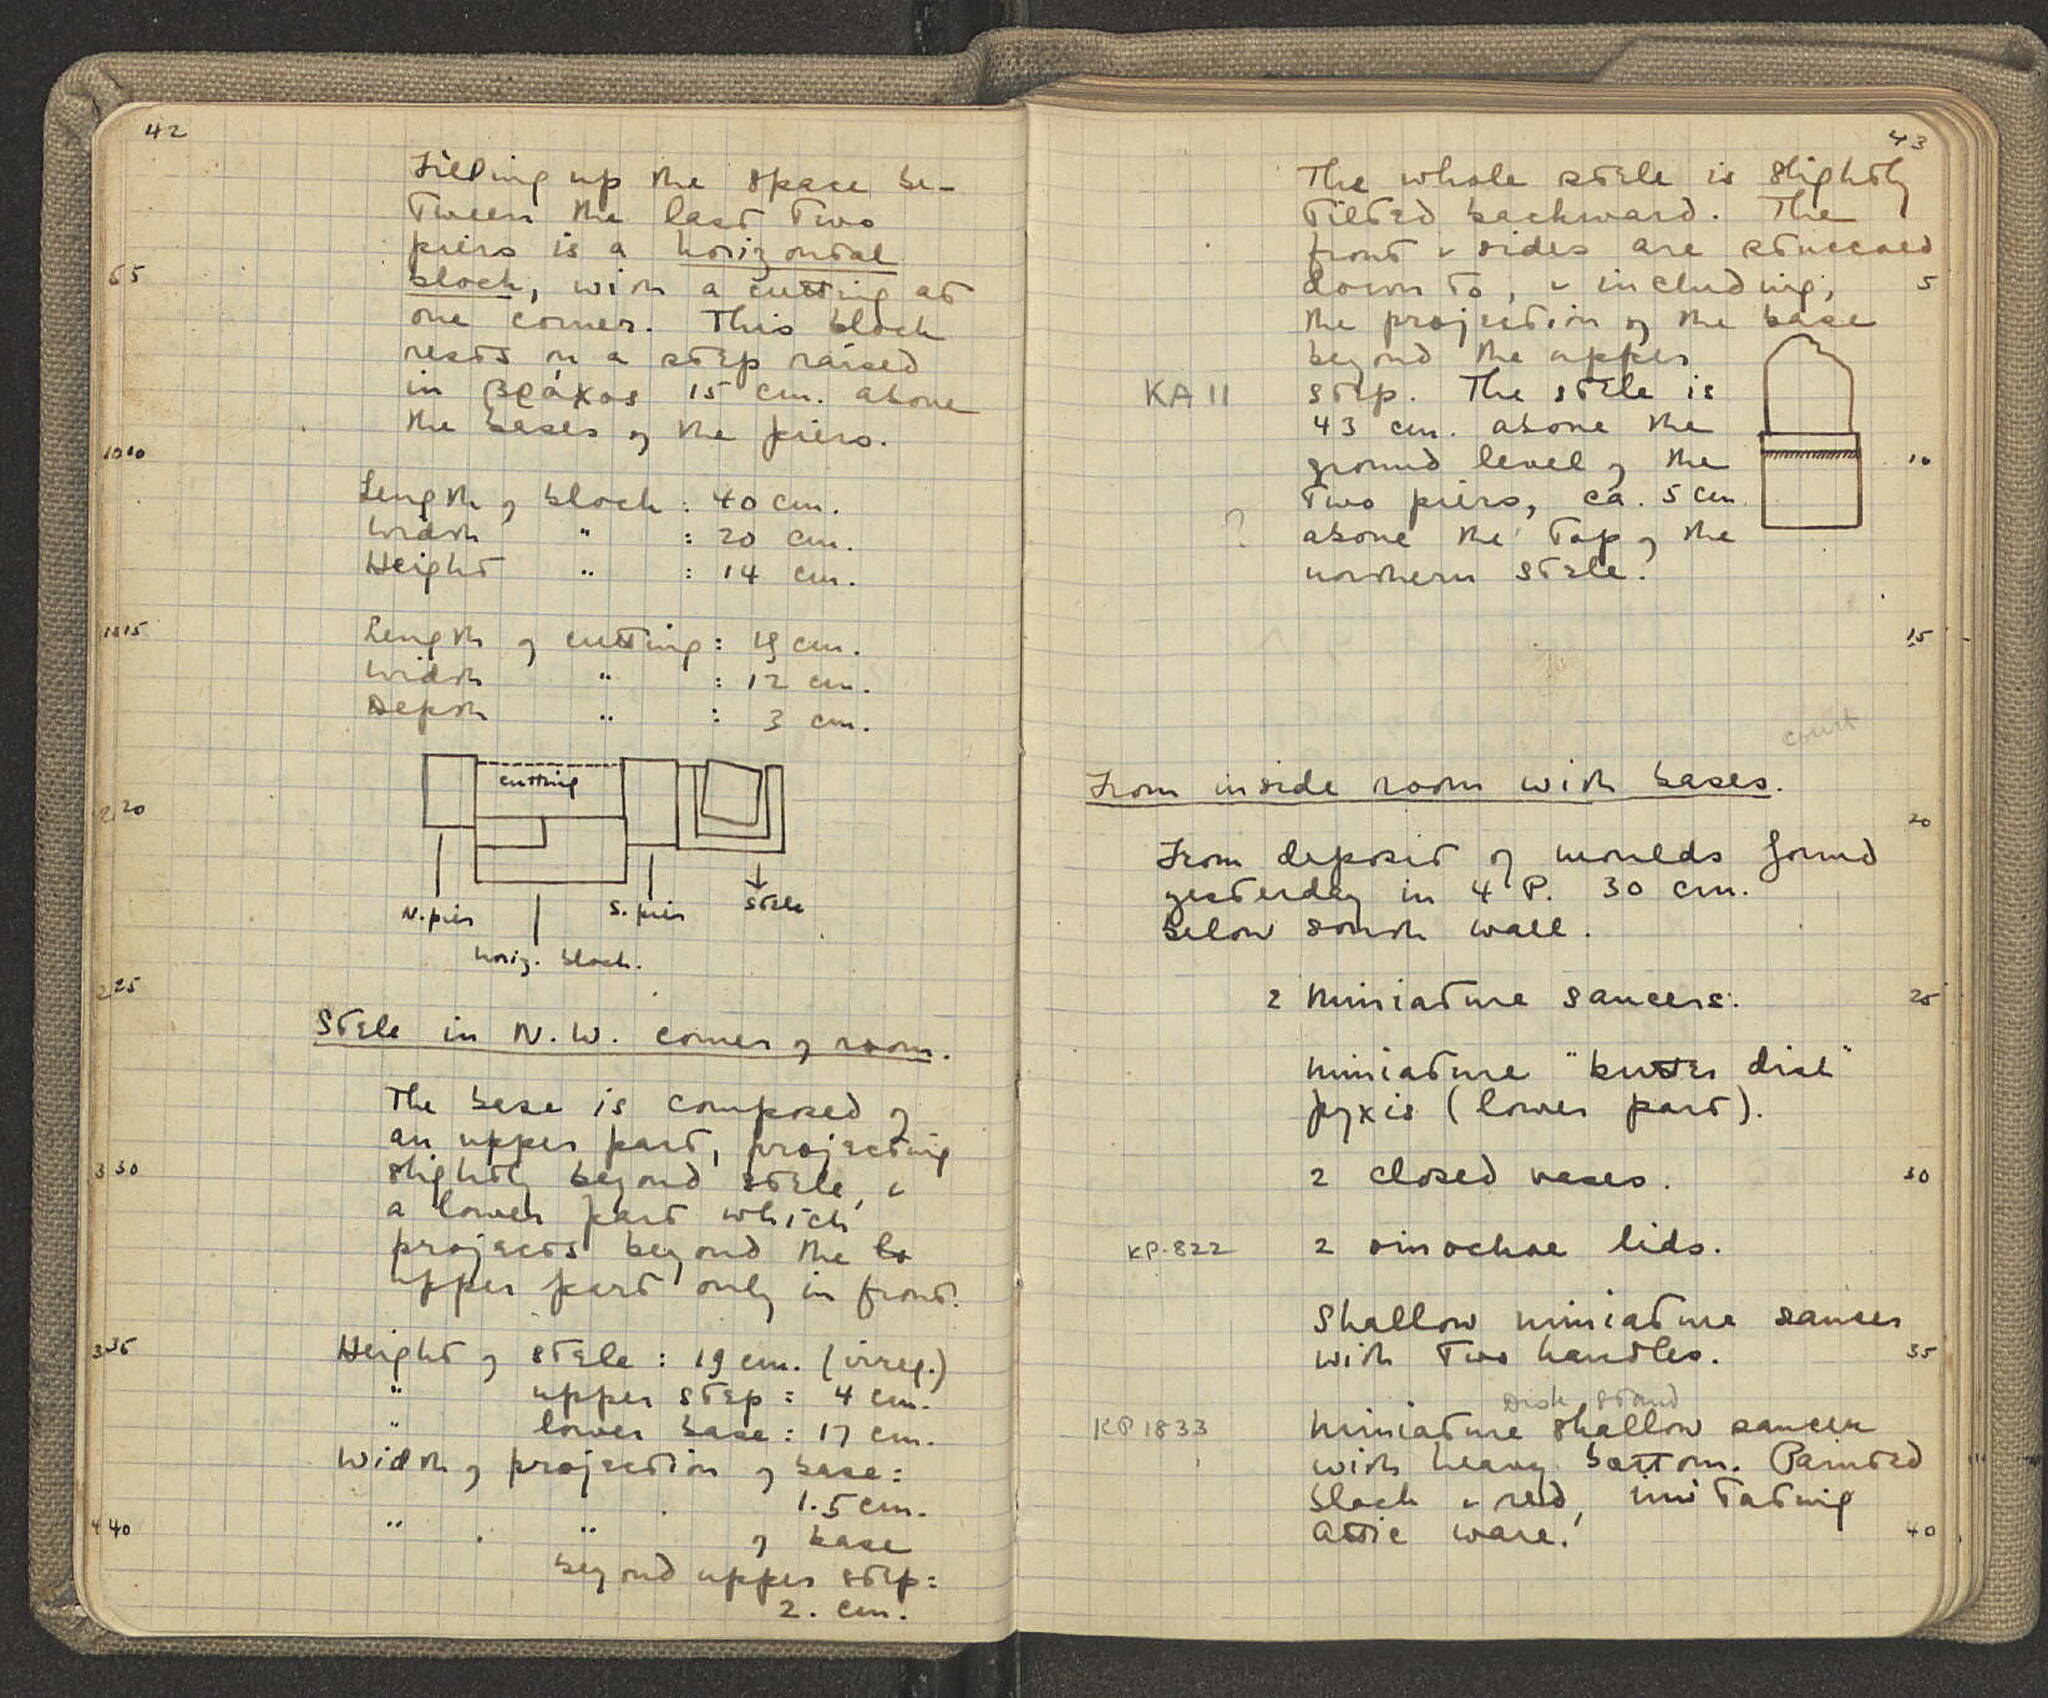 42
Filling up the space be-
tween the last two
piers is a horizontal
block, with a cutting at
one corner. This block
rests on a step raised
in βράχος 15 cm. above
the bases of the piers.
Length of block : 40 cm.
Width " : 20 cm.
Height " : 14 cm.
Length of cutting : 19 cm.
Width " : 12 cm.
Depth " : 3 cm.
cutting
N. pier
S. pier
stele
horiz. block.
Stele in N.W. corner of room.
The base is composed of
an upper part, projecting
slightly beyond stele, &
a lower part which
projects beyond the lo
upper part only in front.
Height of stele : 19 cm. (irreg.)
" upper step : 4 cm.
" lower base : 17 cm.
Width of projection of base :
1.5 cm.
" " of base
beyond upper step :
2. cm.
5
10
15
20
25
30
35
40
43
The whole stele is slightly
tilted backward. The
front & sides are stuccoed
down to, & including,
the projection of the base
beyond the upper
KA 11 step. The stele is
43 cm. above the
ground level of the
two piers, ca. 5 cm
? above the top of the
northern stele.
court
From inside room with bases.
From deposit of moulds found
yesterday in 4 P. 30 cm.
below south wall.
2 miniature saucers.
miniature "butter dish"
pyxis (lower part).
2 closed vases.
KP-822 2 oinochoe lids.
Shallow miniature saucer
with two handles.
Dish stand
KP 1833 miniature shallow saucer
with heavy bottom. Painted
black & red, imitating
Attic ware.
5
10
15
20
25
30
35
40